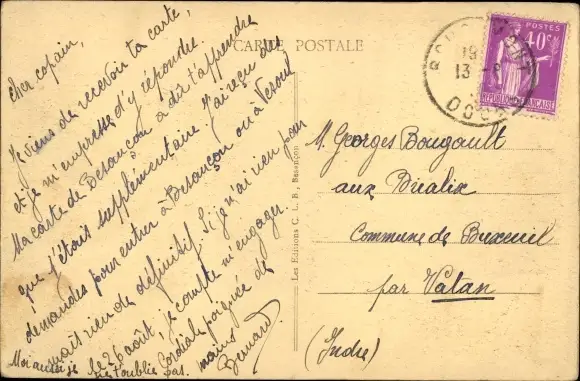 CARTE POSTALE
Cher copain,
Je viens de recevoir ta carte,
et je m'empresse d'y répondre.
Ma carte de Besançon a dû t'apprendre
que j'étais supplémentaire. J'ai reçu des
demandes pour entrer à Besançon ou à Vesoul
mais rien de définitif. Si je n'ai rien pour
le 26 août, je compte m'engager.
Cordiale poignée de
mains
Bernard
Moi aussi je ne t'oublie pas.
Les Editions C. L. B., Besançon
POSTES
40c
REPUBLIQUE FRANÇAISE
19
13 -8
DOUBS
M. Georges Bougault
aux
Commune de Buxeuil
par Vatan
(Indre)